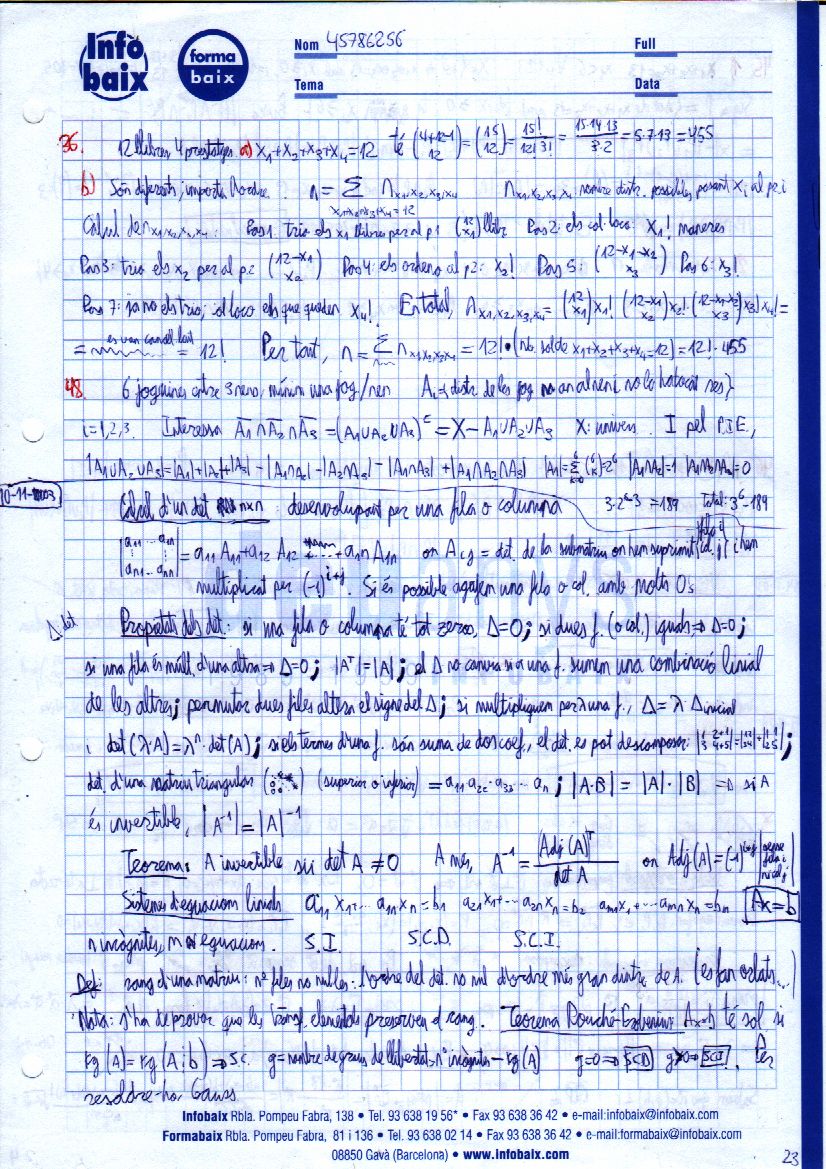 Infò baix
forma baix
Nom 45786256
Full
Tema
Data
36. 12 llibres 4 prestatges a) x₁+x₂+x₃+x₄=12 té (4+12-1 / 12) = (15 / 12) = 15!/12!3! = 15·14·13/3·2 = 5·7·13 = 455
b) Són diferents, importa l'ordre. n = Σ n x₁,x₂,x₃,x₄ n x₁,x₂,x₃,x₄ nombre distr. possibles posant xᵢ al p.i
x₁+x₂+x₃+x₄=12
Càlcul de n x₁,x₂,x₃,x₄: Pas 1: trio els x₁ llibres per al p1 (12 / x₁) llibr Pas 2: els col·loco: x₁! maneres
Pas 3: trio els x₂ per al p2 (12-x₁ / x₂) Pas 4: els ordeno al p2: x₂! Pas 5: (12-x₁-x₂ / x₃) Pas 6: x₃!
Pas 7: ja no els trio; col·loco els que queden x₄!. En total, n x₁,x₂,x₃,x₄ = (12 / x₁) x₁! (12-x₁ / x₂) x₂! (12-x₁-x₂ / x₃) x₃! x₄! =
= es van cancel·lant = 12! Per tant, n = Σ n x₁x₂x₃x₄ = 12! · (nb. sol de x₁+x₂+x₃+x₄=12) = 12! · 455
48. 6 joguines entre 3 nens, mínim una jog/nen Aᵢ={distr. de les jog on al nen i no li ha tocat res}
i=1,2,3. Interessa A̅₁∩A̅₂∩A̅₃ = (A₁∪A₂∪A₃)ᶜ = X - A₁∪A₂∪A₃ X: univers. I pel P.I.E.,
|A₁∪A₂∪A₃| = |A₁|+|A₂|+|A₃| - |A₁∩A₂| - |A₂∩A₃| - |A₁∩A₃| + |A₁∩A₂∩A₃| |A₁| = Σ (6 / k) = 2⁶ |A₁∩A₂|=1 |A₁∩A₂∩A₃|=0
10-11-2003
Càlcul d'un det. n×n: desenvolupant per una fila o columna 3·2⁶-3 = 189 total: 3⁶-189
|a₁₁ ... a₁ₙ / aₙ₁ ... aₙₙ| = a₁₁A₁₁ + a₁₂A₁₂ + ... + a₁ₙA₁ₙ on Aᵢⱼ = det. de la submatriu on hem suprimit {fila i / col. j} i hem
multiplicat per (-1)ⁱ⁺ʲ. Si és possible agafem una fila o col. amb molts 0's
Δ det
Propietats dels det.: si una fila o columna té tot zeros, Δ=0; si dues f. (o col.) iguals ⇒ Δ=0;
si una fila és múlt. d'una altra ⇒ Δ=0; |Aᵀ|=|A|; el Δ no canvia si a una f. sumem una combinació linial
de les altres; permutar dues files altera el signe del Δ; si multipliquem per λ una f., Δ = λ Δinicial
i det(λ·A)=λⁿ·det(A); si els termes d'una f. són suma de dos coef., el det. es pot descomposar: |1 2 / 3 4+5|
det. d'una matriu triangular (superior o inferior) = a₁₁·a₂₂·a₃₃ ... aₙ; |A·B| = |A|·|B| ⇒ si A
és invertible, |A⁻¹| = |A|⁻¹
Teorema: A invertible sii det A ≠ 0 A més, A⁻¹ = (Adj(A))ᵀ / det A on Adj(A) = (-1)ⁱ⁺ʲ |sense fila i ni col j|
Sistemes d'equacions linials a₁₁x₁+...a₁ₙxₙ=b₁ a₂₁x₁+...a₂ₙxₙ=b₂ aₘ₁x₁+...aₘₙxₙ=bₘ Ax=b
n incògnites, m equacions. S.I. S.C.D. S.C.I.
Def: rang d'una matriu: nº files no nul·les: l'ordre del det. no nul d'ordre més gran dintre de A. (es fan orlats...)
Nota: s'ha de provar que les transf. elementals preserven el rang. Teorema Rouché-Frobenius: Ax=b té sol si
rg(A) = rg(A|b) ⇒ S.C. g = nombre de graus de llibertat = nº incògnites - rg(A) g=0 ⇒ SCD g>0 ⇒ SCI. Per
resoldre-ho, Gauss.
Infobaix Rbla. Pompeu Fabra, 138 • Tel. 93 638 19 56* • Fax 93 638 36 42 • e-mail:infobaix@infobaix.com
Formabaix Rbla. Pompeu Fabra, 81 i 136 • Tel. 93 638 02 14 • Fax 93 638 36 42 • e-mail:formabaix@infobaix.com
08850 Gavà (Barcelona) • www.infobaix.com
23